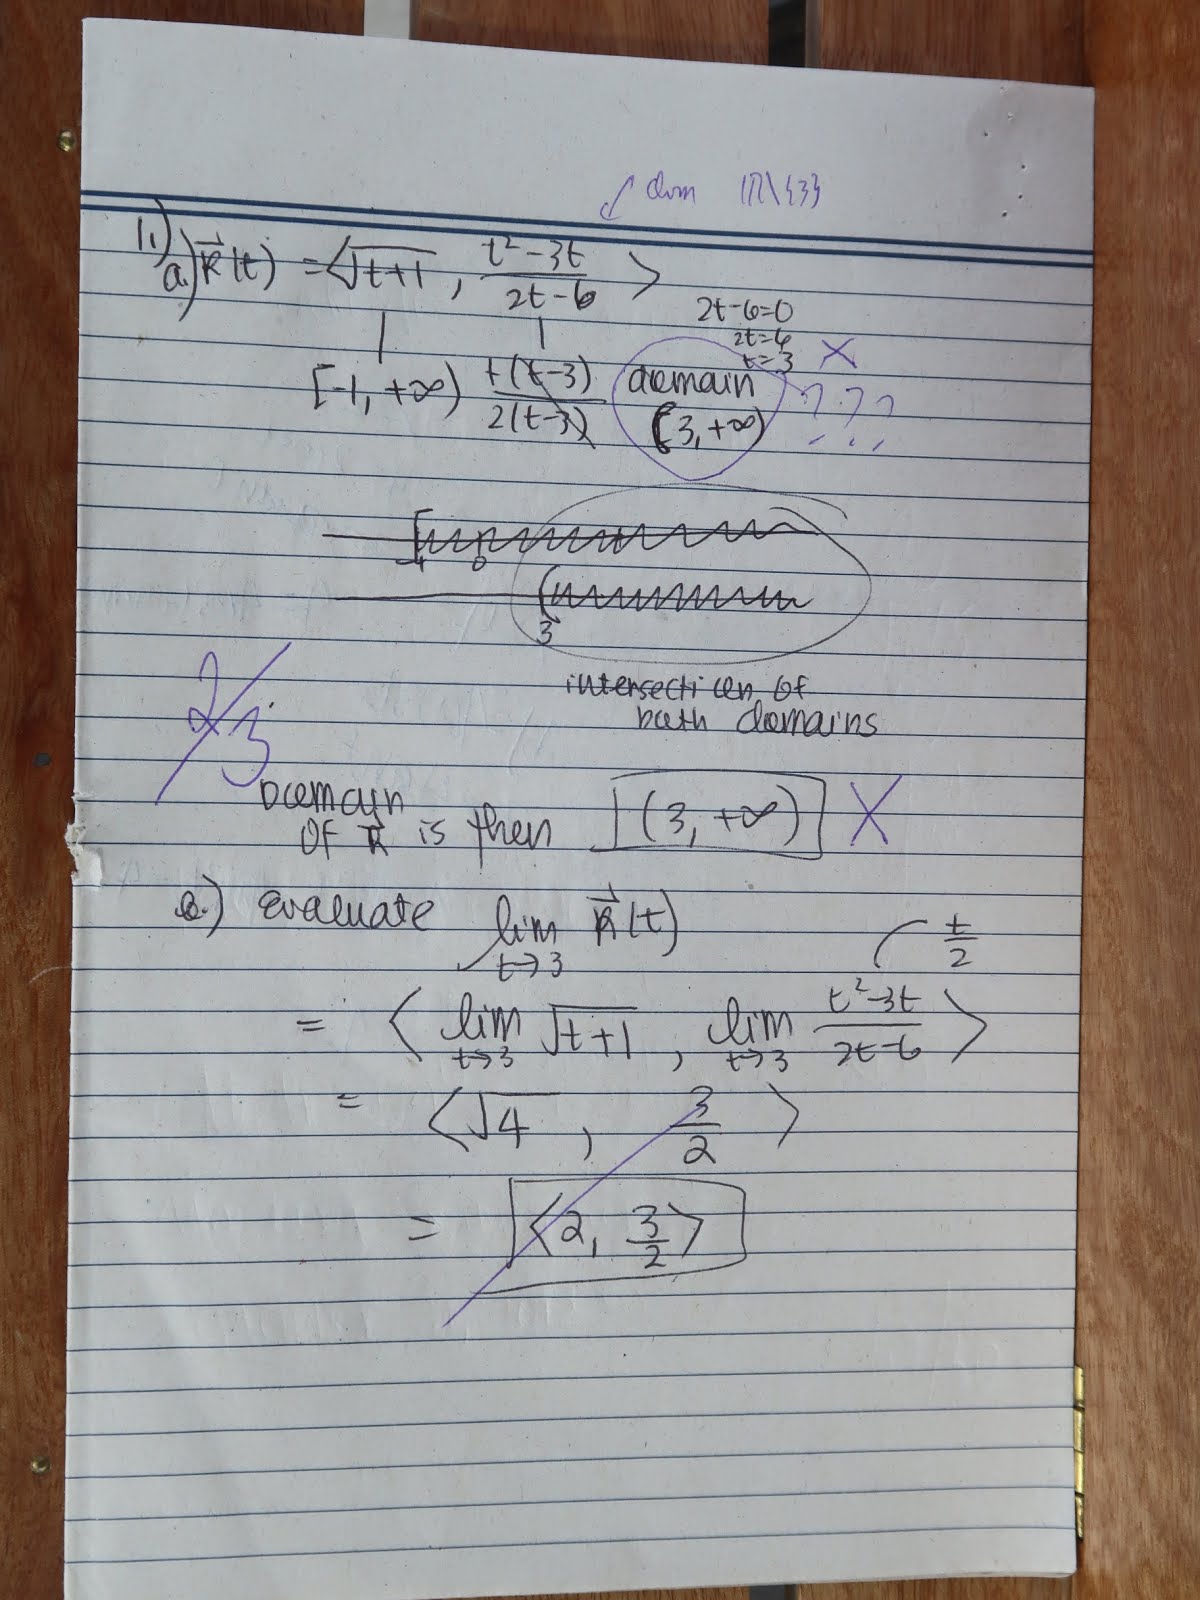 dom ℝ\{3}
1.)
a.) R⃗(t) = ⟨√t+1, t²-3t/2t-6⟩
2t-6=0
2t=6
t=3 X
[-1, +∞) t(t-3)/2(t-3) domain
(3, +∞) ???
-1 0
3
intersection of
both domains
2/3
Domain
of R⃗ is then (3, +∞) X
b.) evaluate lim t→3 R⃗(t)
t/2
= ⟨lim t→3 √t+1, lim t→3 t²-3t/2t-6⟩
= ⟨√4, 3/2⟩
= ⟨2, 3/2⟩